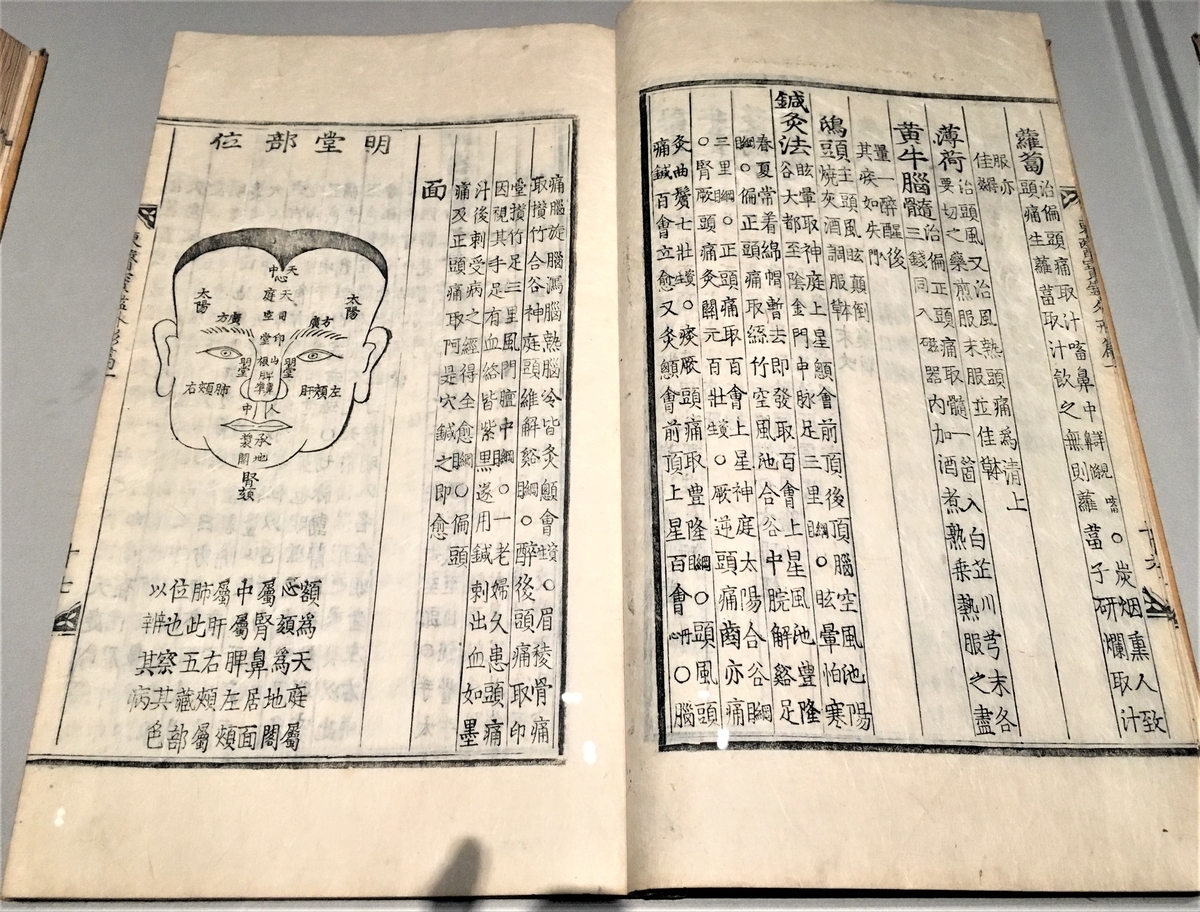 蘿蔔
治偏頭痛取汁㗜鼻中
頭痛生蘿蔔取汁飲之無則蘿蔔子研爛取汁
○炭烟熏人致
服亦
佳
薄荷
治頭風又治風熱頭痛為清上
要切之藥煎服末服並佳
黃牛腦髓
治偏正頭痛取髓一箇入白芷川芎末各
三錢同入磁器內加酒煮熟乘熱服之盡
量一醉醒後
其疾如失入門
鴟頭
主頭風眩顛倒
燒灰酒調服
鍼灸法
眩暈取神庭上星顖會前頂後頂腦空風池陽
谷大都至陰金門申脉足三里綱目○眩暈怕寒
春夏常着綿帽暫去即發取百會上星風池豊隆
綱目○偏正頭痛取絲竹空風池合谷中脘解谿足
三里綱目○正頭痛取百會上星神庭太陽合谷綱目
○腎厥頭痛灸關元百壯資生○厥逆頭痛齒亦痛
灸曲鬢七壯資生○痰厥頭痛取豊隆綱目○頭風頭
痛鍼百會立愈又灸顖會前頂上星百會丹心○腦
痛腦旋腦瀉腦熱腦冷皆灸顖會資生○眉稜骨痛
取攢竹合谷神庭頭維解谿綱目○醉後頭痛取印
堂攢竹足三里風門膻中綱目○一老婦久患頭痛
因視其手足有血絡皆紫黑遂用鍼刺出血如墨
汁後刺受病之經得全愈綱目○偏頭
痛及正頭痛取阿是穴鍼之即愈
面
明堂部位
天中
天庭
心
司空
印堂
太陽
太陽
方廣
方廣
山根
明堂
明堂
鼻準
脾
左頰肝
右頰肺
人中
承漿
地閣
腎頦
額為天庭屬
心頦為地閣
屬腎鼻居面
中屬脾左頰
屬肝右頰屬
肺此五藏部
位也察其色
以辨其病